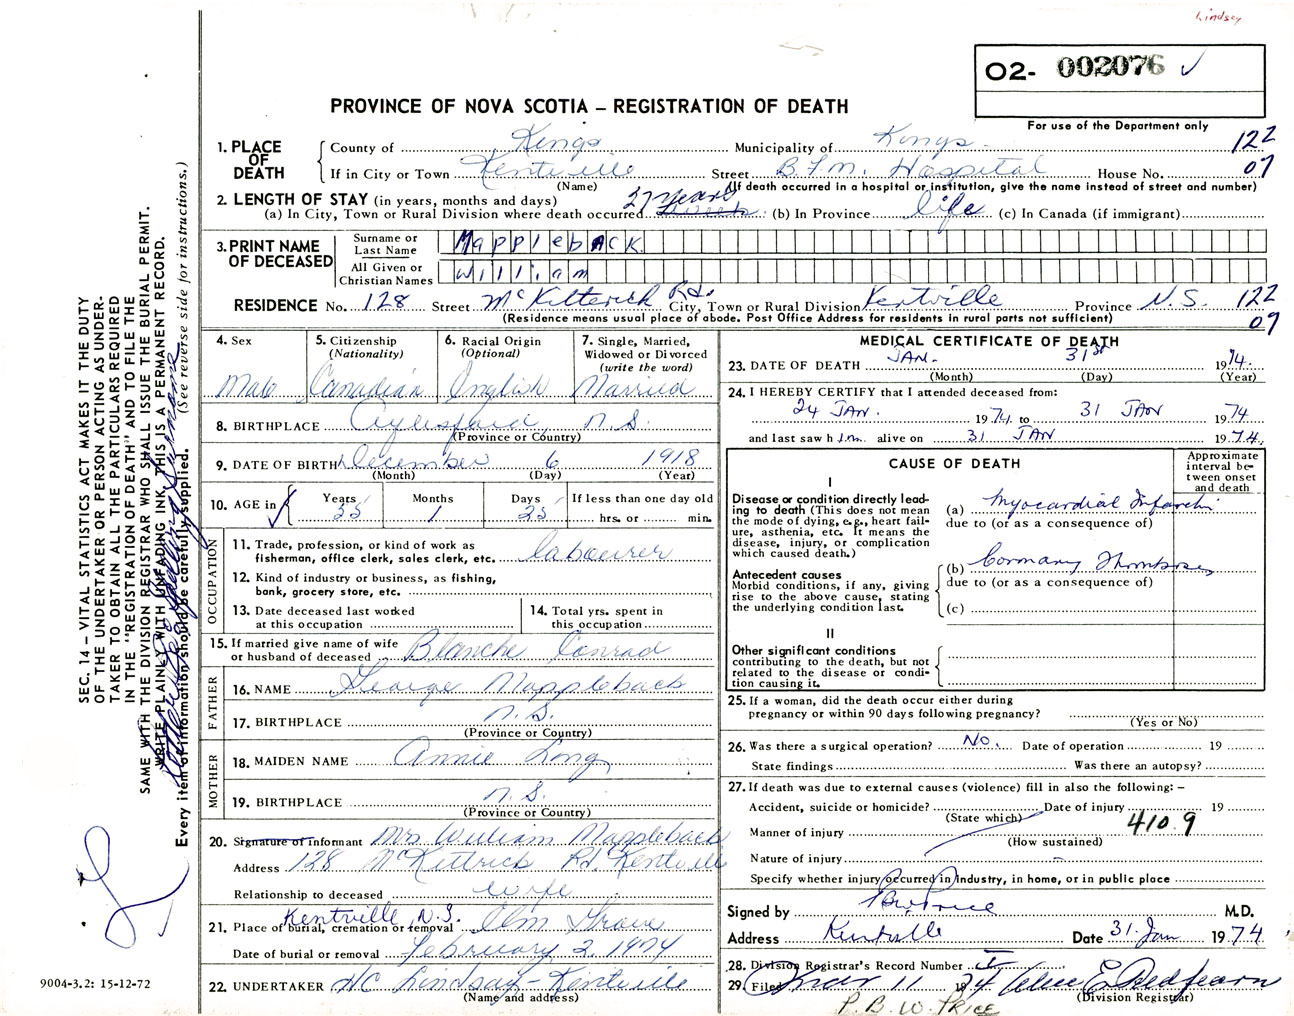 Lindsey
O2- 002076 ✓
PROVINCE OF NOVA SCOTIA – REGISTRATION OF DEATH
For use of the Department only
1. PLACE OF DEATH
County of Kings Municipality of Kings 122
If in City or Town Kentville Street B.F.M. Hospital House No. 07
(Name) (If death occurred in a hospital or institution, give the name instead of street and number)
2. LENGTH OF STAY (in years, months and days)
(a) In City, Town or Rural Division where death occurred 27 years (b) In Province life (c) In Canada (if immigrant)
3. PRINT NAME OF DECEASED
Surname or Last Name Mappleback
All Given or Christian Names William
RESIDENCE No. 128 Street McKitterick Rd. City, Town or Rural Division Kentville Province N.S. 122
(Residence means usual place of abode. Post Office Address for residents in rural parts not sufficient) 07
4. Sex Male
5. Citizenship (Nationality) Canadian
6. Racial Origin (Optional) English
7. Single, Married, Widowed or Divorced (write the word) Married
8. BIRTHPLACE Aylesford N.S.
(Province or Country)
9. DATE OF BIRTH December 6 1918
(Month) (Day) (Year)
10. AGE in Years 55 Months 1 Days 25 If less than one day old hrs. or min.
OCCUPATION
11. Trade, profession, or kind of work as fisherman, office clerk, sales clerk, etc. labourer
12. Kind of industry or business, as fishing, bank, grocery store, etc.
13. Date deceased last worked at this occupation
14. Total yrs. spent in this occupation
15. If married give name of wife or husband of deceased Blanche Conrad
FATHER
16. NAME George Mappleback
17. BIRTHPLACE N.S.
(Province or Country)
MOTHER
18. MAIDEN NAME Annie Long
19. BIRTHPLACE N.S.
(Province or Country)
20. Signature of informant Mrs William Mappleback
Address 128 McKittrick Rd Kentville
Relationship to deceased wife
Kentville, N.S.
21. Place of burial, cremation or removal Elm Grove
Date of burial or removal February 2, 1974
22. UNDERTAKER HC Lindsay - Kentville
(Name and address)
MEDICAL CERTIFICATE OF DEATH
23. DATE OF DEATH JAN. 31st 1974.
(Month) (Day) (Year)
24. I HEREBY CERTIFY that I attended deceased from:
24 JAN. 1974 to 31 JAN 1974
and last saw him alive on 31 JAN 1974.
CAUSE OF DEATH
Approximate interval between onset and death
I
Disease or condition directly leading to death (This does not mean the mode of dying, e.g., heart failure, asthenia, etc. It means the disease, injury, or complication which caused death.)
(a) Myocardial Infarction
due to (or as a consequence of)
Antecedent causes
Morbid conditions, if any, giving rise to the above cause, stating the underlying condition last.
(b) Coronary Thrombosis
due to (or as a consequence of)
(c)
II
Other significant conditions contributing to the death, but not related to the disease or condition causing it.
25. If a woman, did the death occur either during pregnancy or within 90 days following pregnancy?
(Yes or No)
26. Was there a surgical operation? No. Date of operation 19
State findings Was there an autopsy?
27. If death was due to external causes (violence) fill in also the following: –
Accident, suicide or homicide? Date of injury 19
(State which)
Manner of injury 410.9
(How sustained)
Nature of injury
Specify whether injury occurred in industry, in home, or in public place
Signed by PBW Price M.D.
Address Kentville Date 31 Jan 1974.
28. Division Registrar's Record Number
29. Filed Mar 11 1974 Alice E. Redfearn
(Division Registrar)
P. B. W. PRICE
SEC. 14 – VITAL STATISTICS ACT MAKES IT THE DUTY
OF THE UNDERTAKER OR PERSON ACTING AS UNDER-
TAKER TO OBTAIN ALL THE PARTICULARS REQUIRED
IN THE "REGISTRATION OF DEATH" AND TO FILE THE
SAME WITH THE DIVISION REGISTRAR WHO SHALL ISSUE THE BURIAL PERMIT.
WRITE PLAINLY WITH UNFADING INK, THIS IS A PERMANENT RECORD.
Every item of information should be carefully supplied. (See reverse side for instructions.)
9004-3.2: 15-12-72